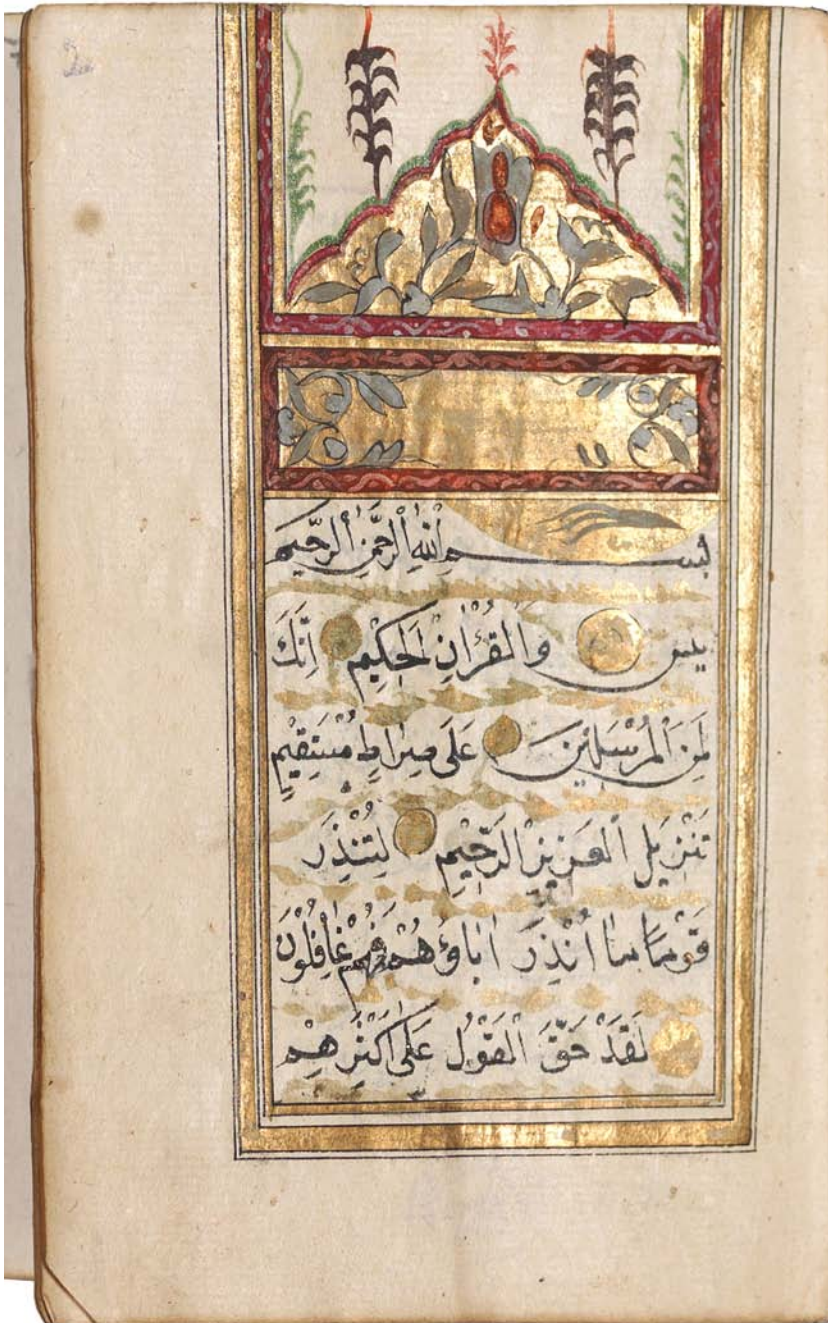 بِسْمِ اللهِ الرَّحْمٰنِ الرَّحِيمِ
يس وَالْقُرْاٰنِ الْحَكِيمِ اِنَّكَ
لَمِنَ الْمُرْسَلِينَ عَلَى صِرَاطٍ مُسْتَقِيمٍ
تَنْزِيلَ الْعَزِيزِ الرَّحِيمِ لِتُنْذِرَ
قَوْمًا مَا اُنْذِرَ اٰبَاؤُهُمْ فَهُمْ غَافِلُونَ
لَقَدْ حَقَّ الْقَوْلُ عَلٰى اَكْثَرِهِمْ